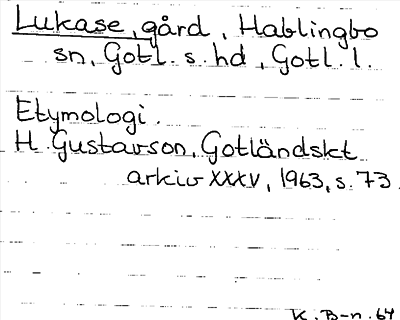 Lukase, gård, Hablingbo
sn, Gotl. s. hd, Gotl. l.
Etymologi.
H. Gustavson, Gotländskt
arkiv XXXV, 1963, s. 73.
K. B-n. 64